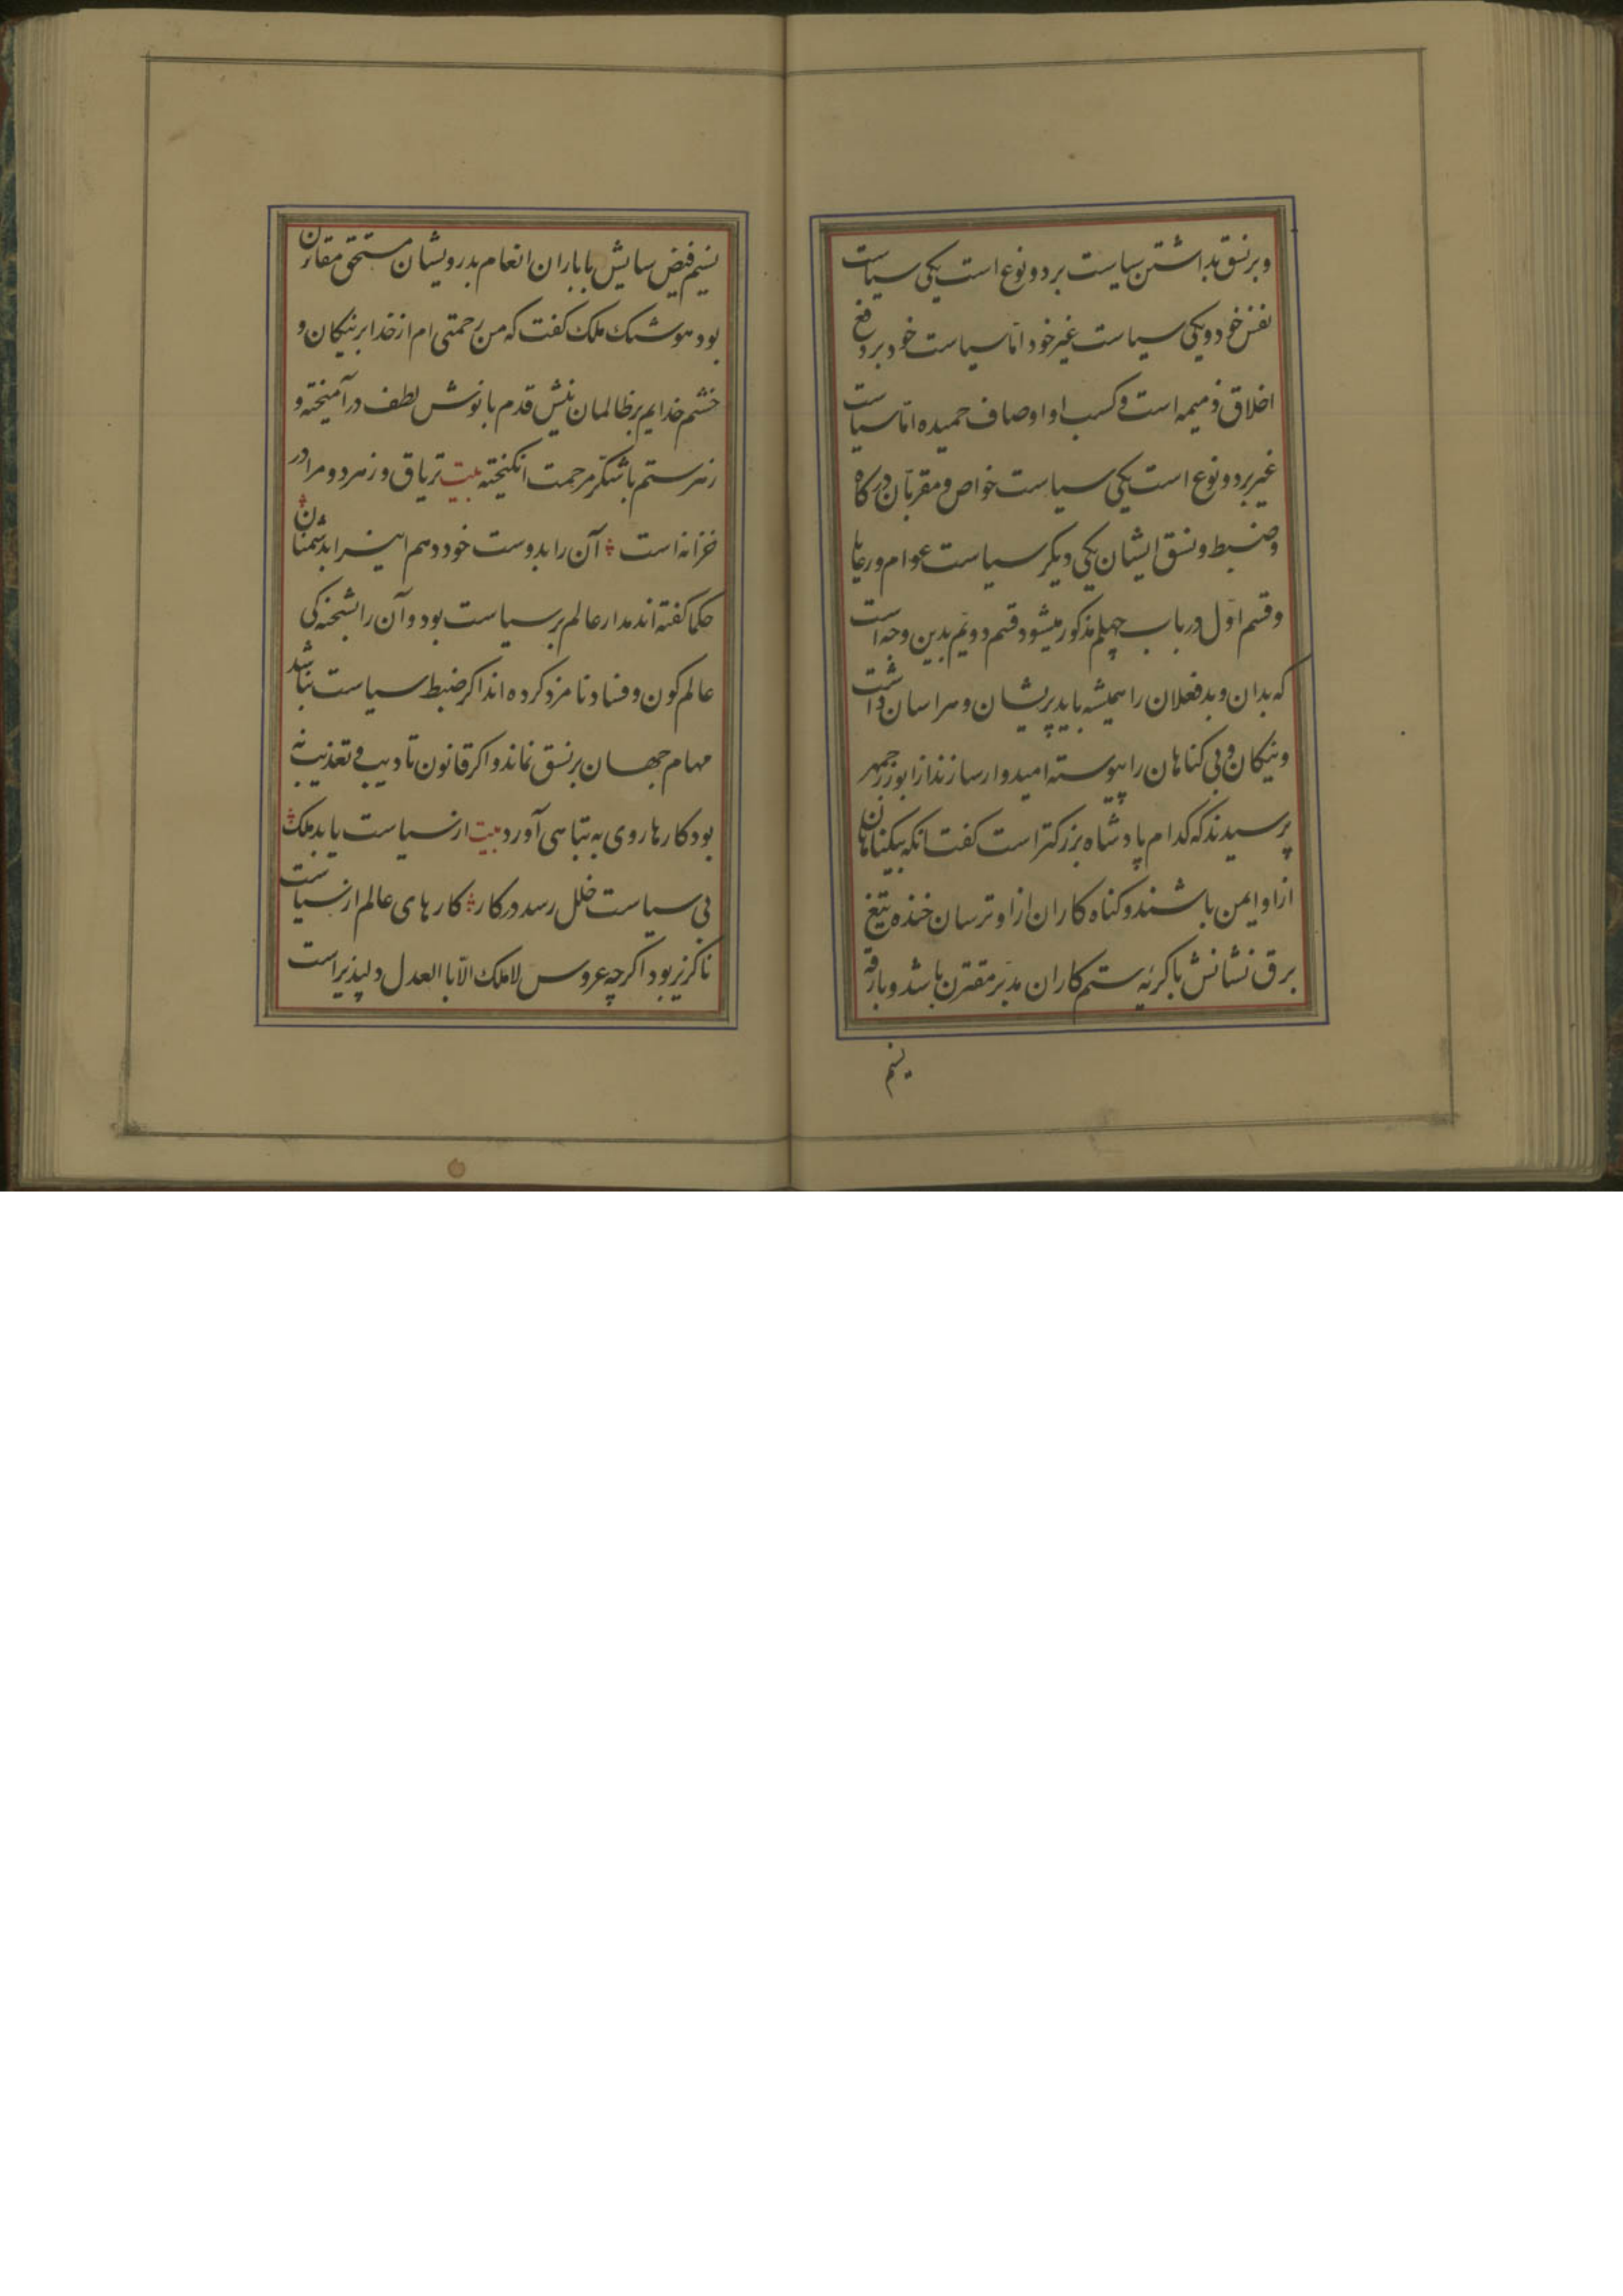 و برنسق بداشتن سیاست بردو نوع است یکی سیاست
نفس خود و یکی سیاست غیر خود امّا سیاست خود بر دفع
اخلاق ذمیمه است و کسب او اوصاف حمیده امّا سیاست
غیر بردو نوع است یکی سیاست خواص و مقربّان درکاه
و ضبط و نسق ایشان یکی دیکر سیاست عوام و رعایا
و قسم اوّل در باب چهلم مذکور میشود قسم دویّم بدین وجه است
که بدان و بدفعلان را همیشه باید پریشان و هراسان داشت
و نیکان و بی کناهان را پیوسته امیدوار سازند از ابوزرجمهر
پرسیدند که کدام پادشاه بزرکتر است کفت انکه بیکناهان
از او ایمن باشند و کناه کاران از او ترسان خنده تیغ
برق نشانش با کریۀ ستم کاران مدبّر مقترن باشد و بارقه
نسیم
نسیم فیض سایش با باران انعام بدرویشان مستحق مقارن
بود هوشنک ملک کفت که من رحمتی ام از خدا بر نیکان و
خشم خدایم بر ظالمان نیش قدم با نوش لطف در آمیخته و
زهر ستم با شکر مرحمت انکیخته بیت تریاق و زهر دو مرا در
خزانه است آن را بدوست خود دهم اینرا بدشمنان
حکما کفته اند مدار عالم بر سیاست بود و آن را بشحنه کی
عالم کون و فساد نامزد کرده اند اکر ضبط سیاست نباشد
مهام جهان بر نسق نماند و اکر قانون تادیب و تعذیب نه
بود کارها روی به تباهی آورد بیت از سیاست یابد ملک
بی سیاست خلل رسد در کار کارهای عالم از سیاست
ناکزیر بود اکرچه عروس لاملک الّا با العدل دلپذیر است